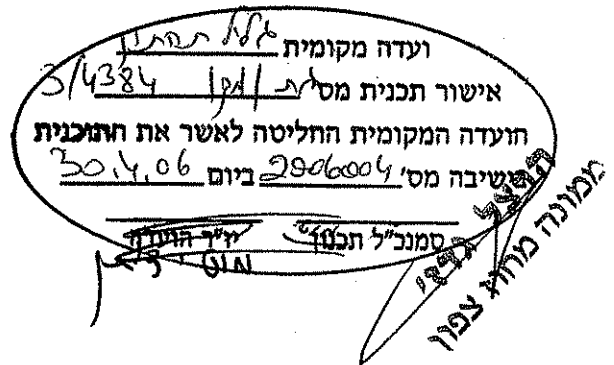 ועדה מקומית גליל תחתון
אישור תכנית מס' גת/מק/ 3/4384
הועדה המקומית החליטה לאשר את התוכנית
בישיבה מס' 2006004 ביום 30.4.06
סמנכ"ל תכנון יו"ר הועדה
ממונה מחוז צפון